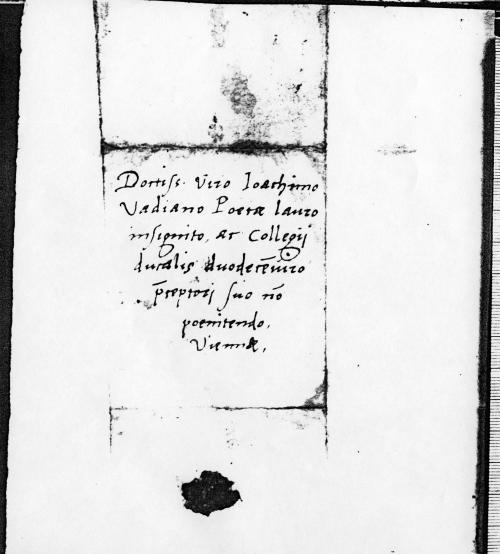 Doctiss. viro Ioachimo
Vadiano Poetæ lauro
insignito, ac Collegij
ducalis duodecē̄viro
p̄ceptori suo nō
poenitendo.
Viennæ,